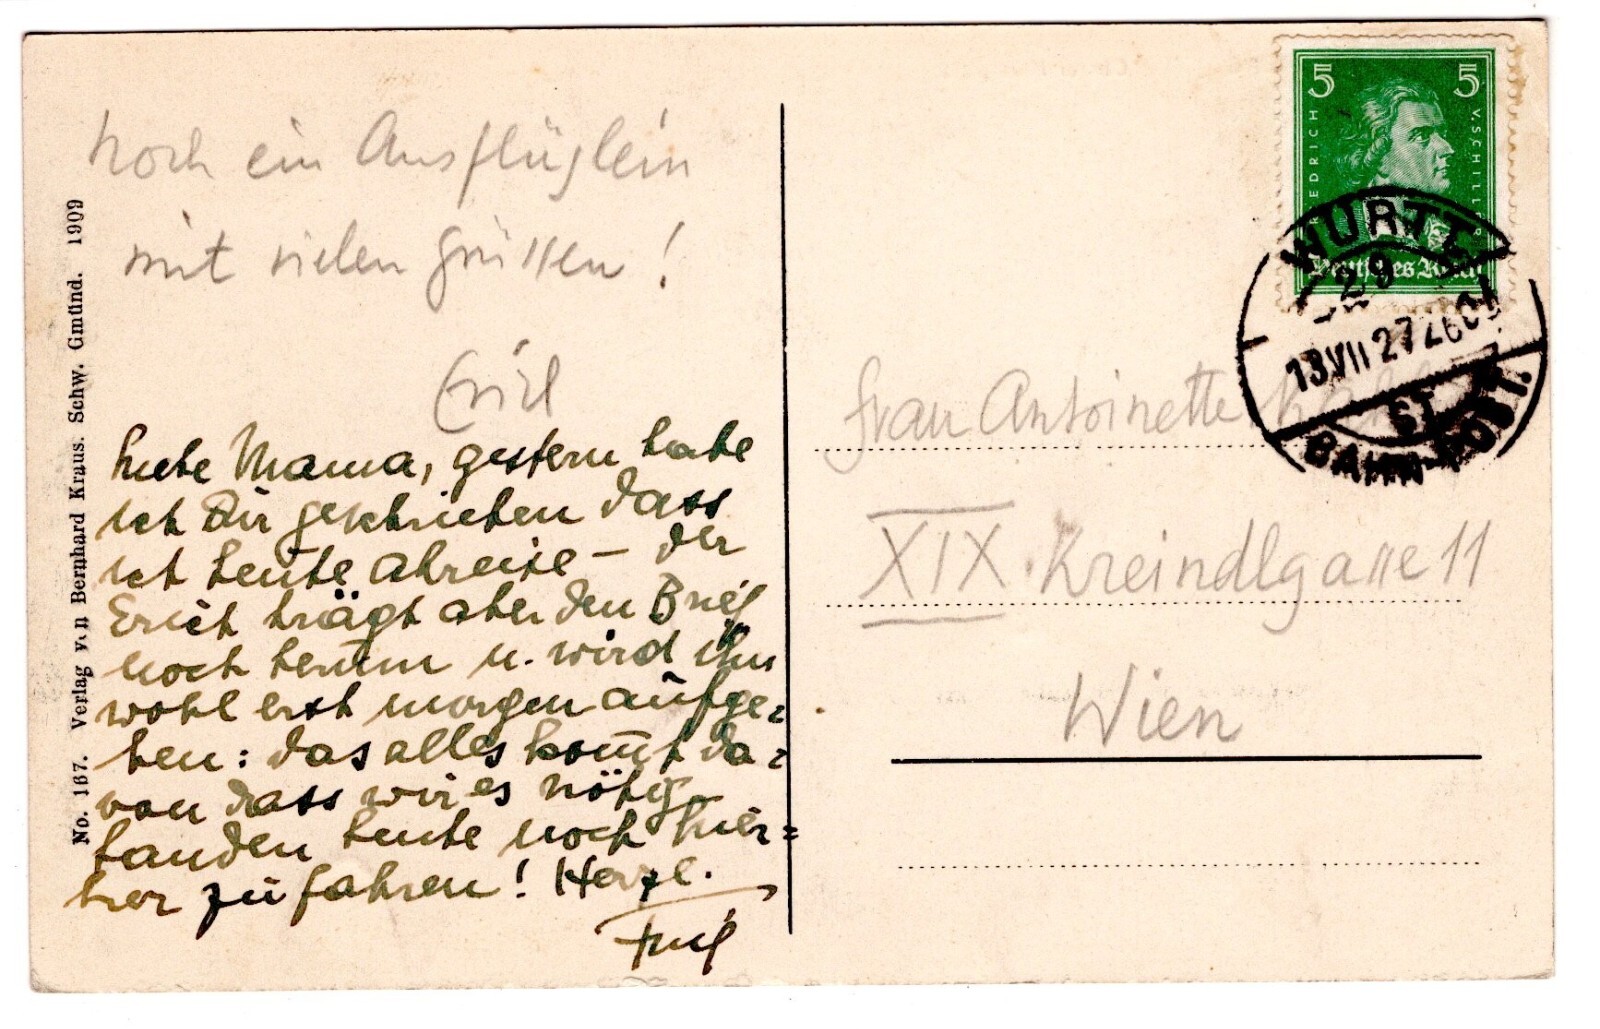 noch ein Ausflüglein
mit vielen Grüssen!
Erich
Liebe Mama, gestern habe
ich Dir geschrieben dass
ich heute abreise – der
Erich trägt aber den Brief
noch herum u. wird ihn
wohl erst morgen aufge=
ben: das alles kommt da=
von dass wir es nötig
fanden heute noch hier=
her zu fahren! Herzl.
No. 167. Verlag von Bernhard Kraus. Schw. Gmünd. 1909
5 5
FRIEDRICH V. SCHILLER
Deutsches Reich
WÜRTT.
29
13.VII 27 Z6
BAHNPOST.
Frau Antoinette
XIX. Kreindlgasse 11
Wien